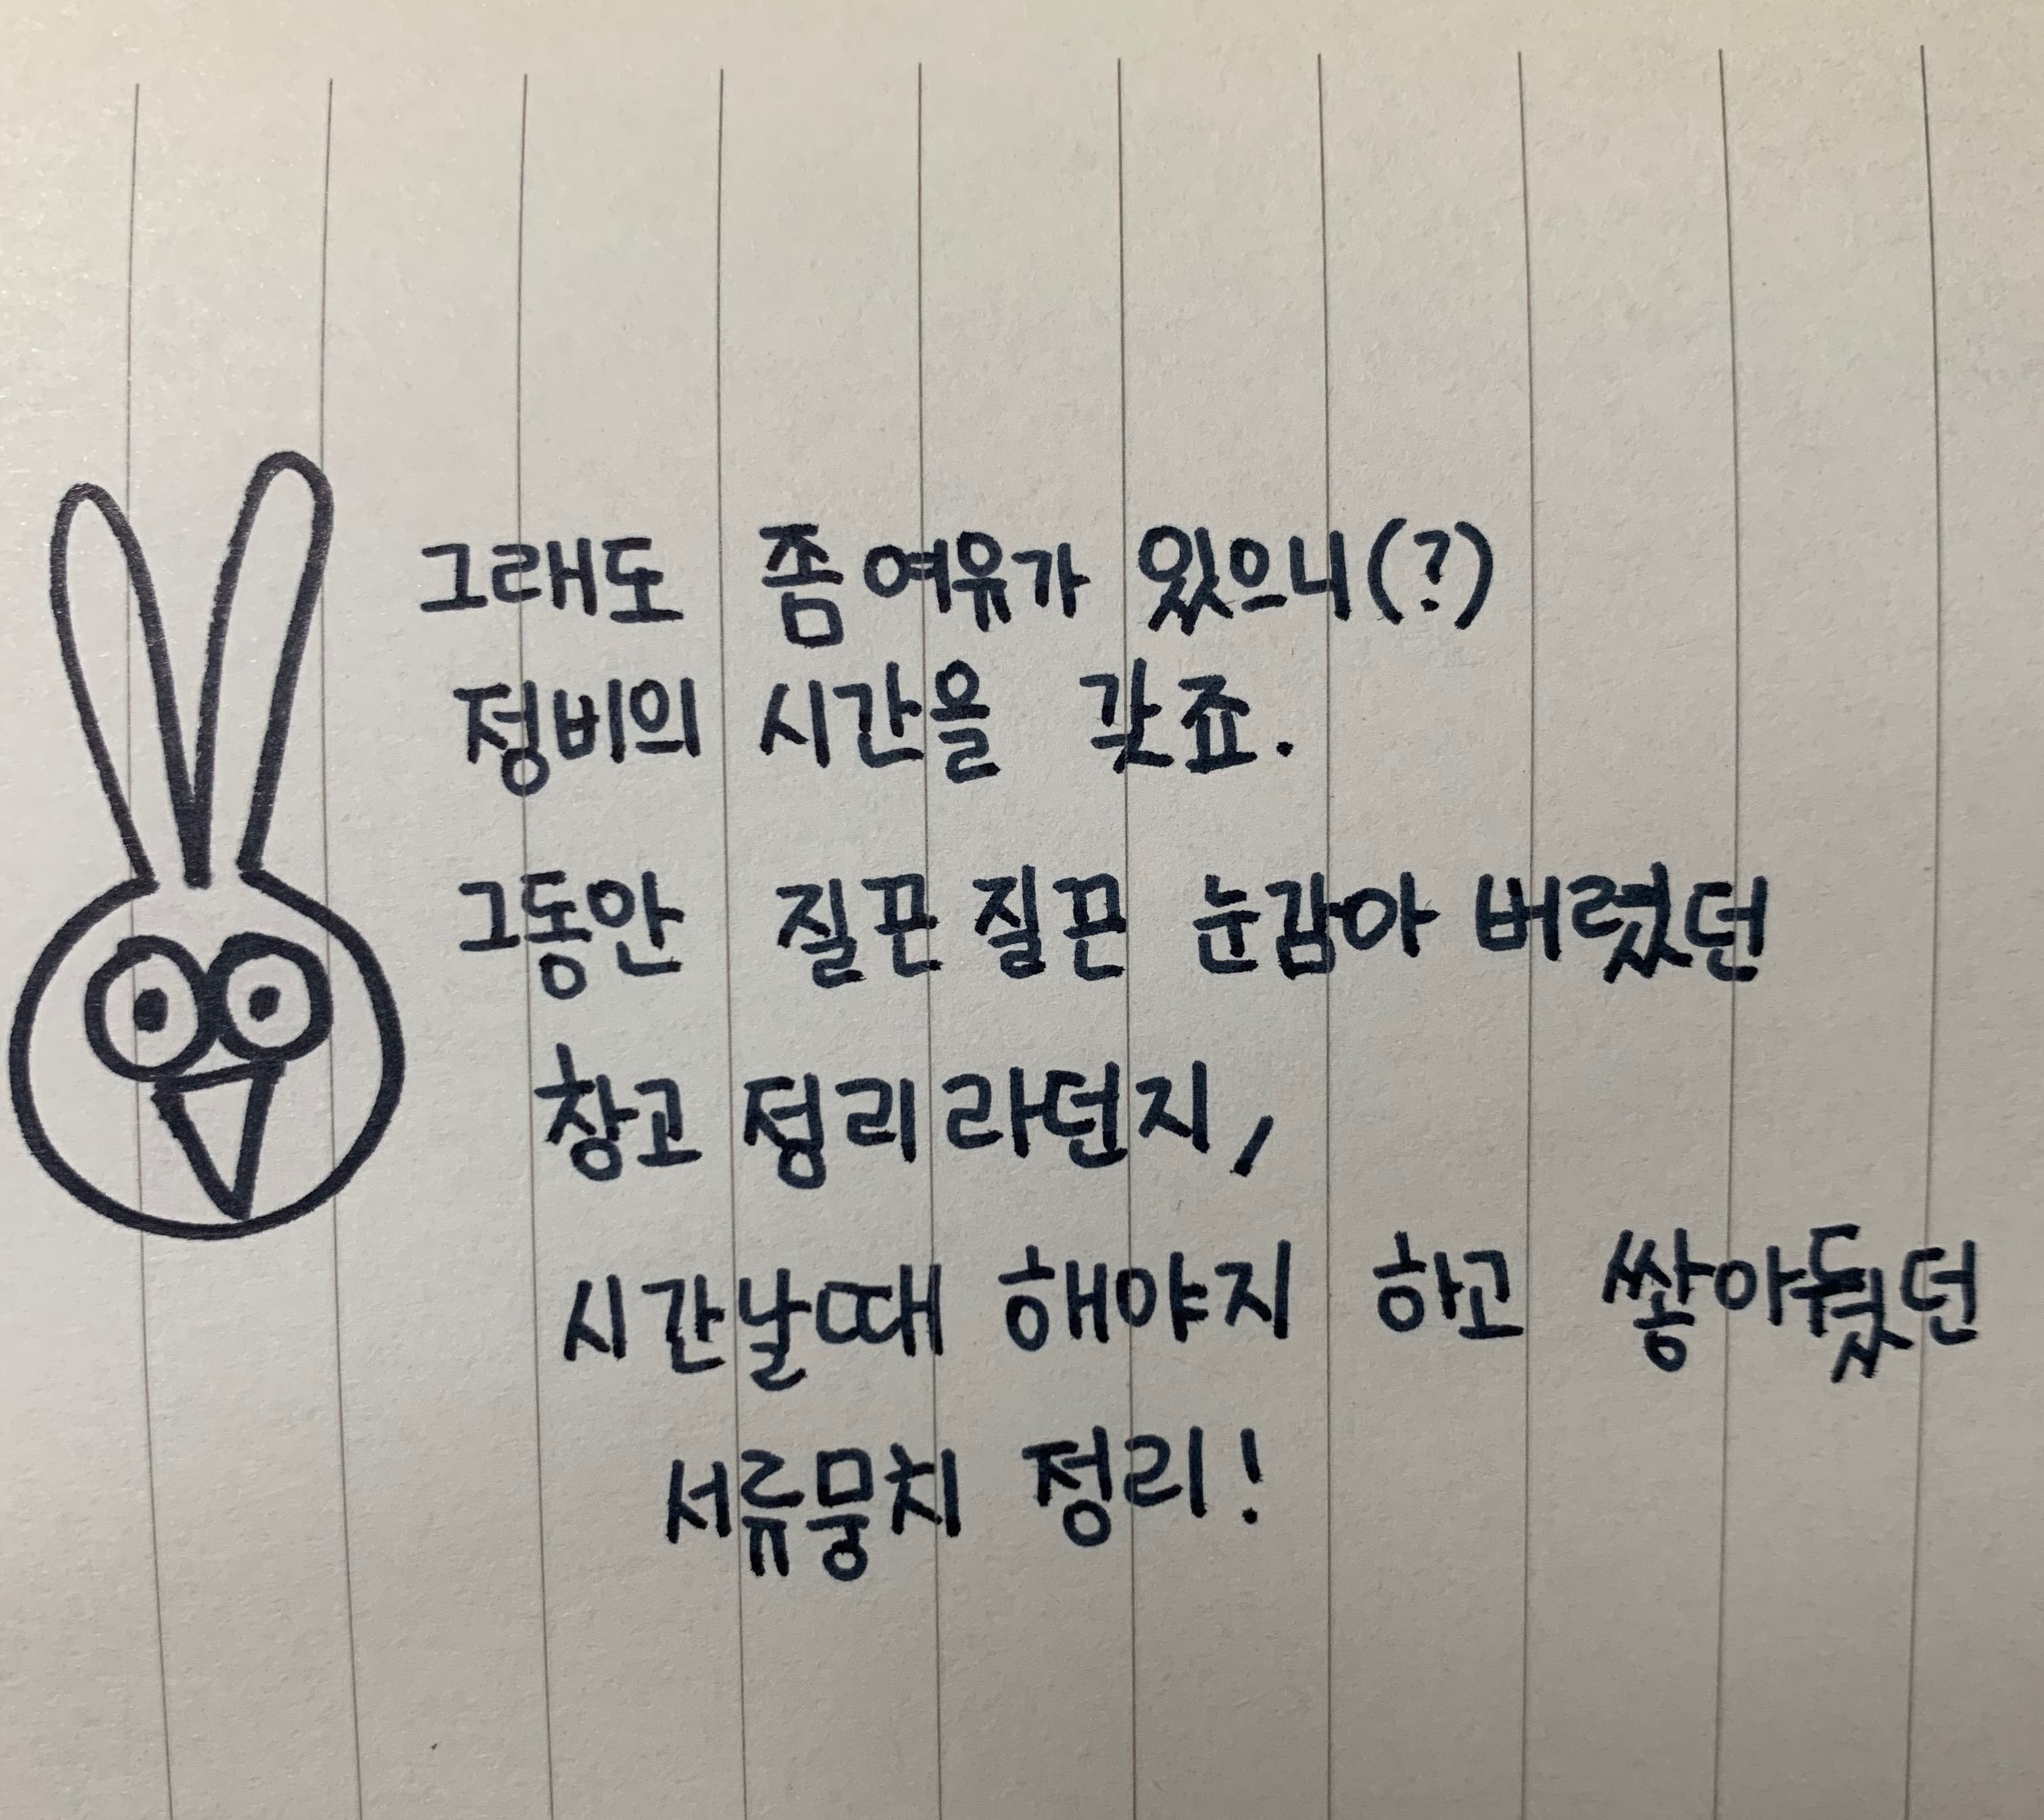 그래도 좀 여유가 있으니(?)
정비의 시간을 갖죠.
그동안 질끈질끈 눈감아 버렸던
창고 정리라던지,
시간날때 해야지 하고 쌓아뒀던
서류뭉치 정리!